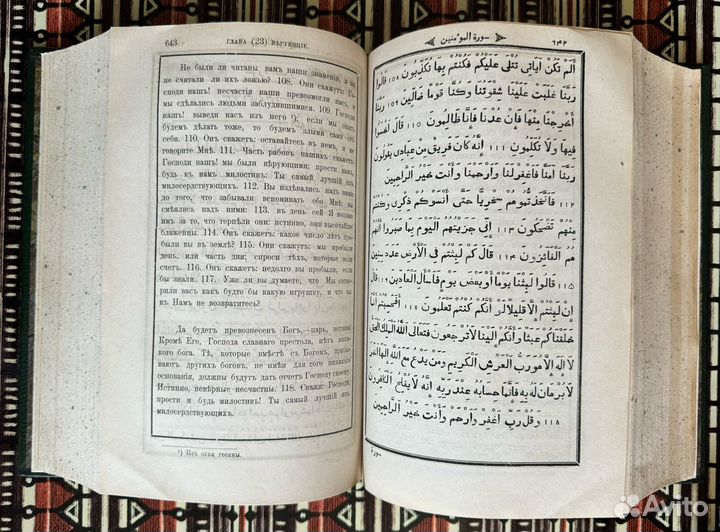 643.
ГЛАВА (23) ВѢРУЮЩІЕ.
Не были ли читаны вамъ наши знаменія, а вы
не считали ли ихъ ложью? 108. Они скажутъ: Го-
споди нашъ! несчастія наши превозмогли насъ, и
мы сдѣлались людьми заблудившимися. 109. Господи
нашъ! выведи насъ изъ него ¹); если мы опять
будемъ дѣлать тоже, то будемъ злыми сами себѣ.
110. Онъ скажетъ: оставайтесь въ немъ, и не
говорите Мнѣ. 111. Часть рабовъ нашихъ скажетъ:
Господи нашъ! мы были вѣрующими; прости намъ,
будь къ намъ милостивъ. Ты самый лучшій изъ
милосердствующихъ. 112. Вы издѣвались надъ ними
до того, что забывали вспоминать обо Мнѣ; вы
смѣялись надъ ними: 113. въ день сей Я воздаю
имъ за то, что терпѣли они: истинно, они высочайше
блаженны. 114. Онъ скажетъ: какое число лѣтъ про-
были вы въ землѣ? 115. Они скажутъ: мы пробыли
день, или часть дня; спроси тѣхъ, которые ведутъ
счетъ. 116. Онъ скажетъ: недолго вы пробыли, если
бы знали. 117. Уже ли вы думаете, что Мы сотво-
рили васъ какъ будто бы какую игрушку, и что вы
къ Намъ не возвратитесь?
Да будетъ превознесенъ Богъ, царь, истина!
Кромѣ Его, Господа славнаго престола, нѣтъ ника-
кого бога. Тѣ, которые вмѣстѣ съ Богомъ, призы-
ваютъ другихъ боговъ, не имѣя для того никакого
основанія, должны будутъ дать отчетъ Господу своему.
Истинно, невѣрные несчастны. 118. Скажи: Господи,
прости и будь милостивъ! Ты самый лучшій изъ
милосердствующихъ.
¹) Изъ огня геенны.
سورة المؤمنين
٦٤٣
أَلَمْ تَكُنْ آيَاتِي تُتْلَى عَلَيْكُمْ فَكُنْتُمْ بِهَا تُكَذِّبُونَ ١٠٨ قَالُوا
رَبَّنَا غَلَبَتْ عَلَيْنَا شِقْوَتُنَا وَكُنَّا قَوْمًا ضَالِّينَ ١٠٩ رَبَّنَا
أَخْرِجْنَا مِنْهَا فَإِنْ عُدْنَا فَإِنَّا ظَالِمُونَ ١١٠ قَالَ اخْسَؤُا
فِيهَا وَلَا تُكَلِّمُونِ ١١١ إِنَّهُ كَانَ فَرِيقٌ مِنْ عِبَادِي يَقُولُونَ
رَبَّنَا آمَنَّا فَاغْفِرْ لَنَا وَارْحَمْنَا وَأَنْتَ خَيْرُ الرَّاحِمِينَ
١١٢ فَاتَّخَذْتُمُوهُمْ سِخْرِيًّا حَتَّى أَنْسَوْكُمْ ذِكْرِي وَكُنْتُمْ
مِنْهُمْ تَضْحَكُونَ ١١٣ إِنِّي جَزَيْتُهُمُ الْيَوْمَ بِمَا صَبَرُوا أَنَّهُمْ
هُمُ الْفَائِزُونَ ١١٤ قَالَ كَمْ لَبِثْتُمْ فِي الْأَرْضِ عَدَدَ سِنِينَ
١١٥ قَالُوا لَبِثْنَا يَوْمًا أَوْ بَعْضَ يَوْمٍ فَاسْأَلِ الْعَادِّينَ ١١٦ قَالَ
إِنْ لَبِثْتُمْ إِلَّا قَلِيلًا لَوْ أَنَّكُمْ كُنْتُمْ تَعْلَمُونَ ١١٧ أَفَحَسِبْتُمْ أَنَّمَا
خَلَقْنَاكُمْ عَبَثًا وَأَنَّكُمْ إِلَيْنَا لَا تُرْجَعُونَ فَتَعَالَى اللَّهُ الْمَلِكُ الْحَقُّ
لَا إِلَهَ إِلَّا هُوَ رَبُّ الْعَرْشِ الْكَرِيمِ وَمَنْ يَدْعُ مَعَ اللَّهِ إِلَهًا آخَرَ
لَا بُرْهَانَ لَهُ بِهِ فَإِنَّمَا حِسَابُهُ عِنْدَ رَبِّهِ إِنَّهُ لَا يُفْلِحُ الْكَافِرُونَ
١١٨ وَقُلْ رَبِّ اغْفِرْ وَارْحَمْ وَأَنْتَ خَيْرُ الرَّاحِمِينَ
Avito